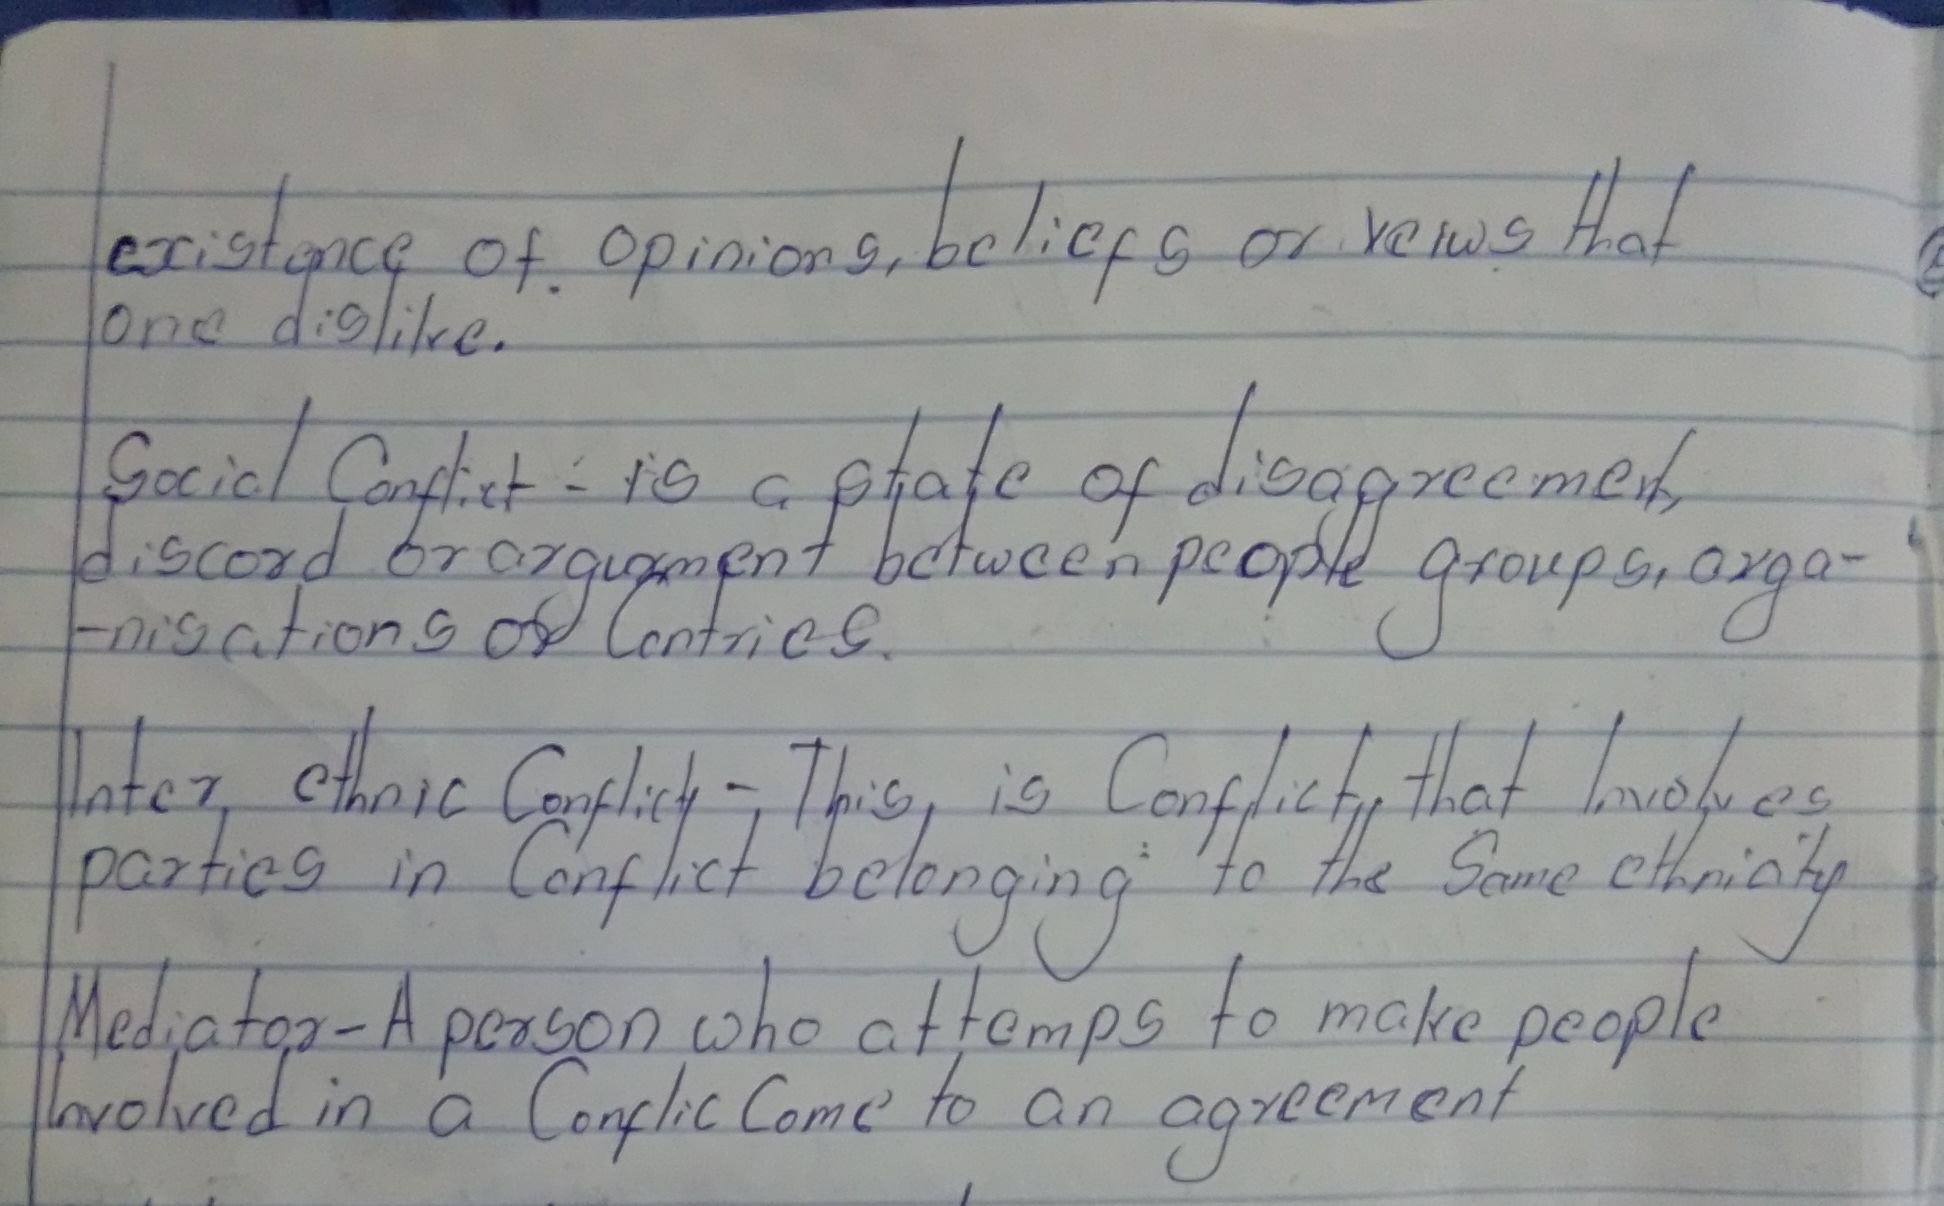 existance of opinions, beliefs or veiws that
one dislike.
Social Conflict - is a state of disagreement,
discord or argument between people groups, orga-
-nisations or Contries.
Inter ethnic Conflict - This, is Conflict, that Involves
parties in Conflict belonging to the Same ethnicity
Mediator - A person who attemps to make people
Involved in a Conflic Come to an agreement